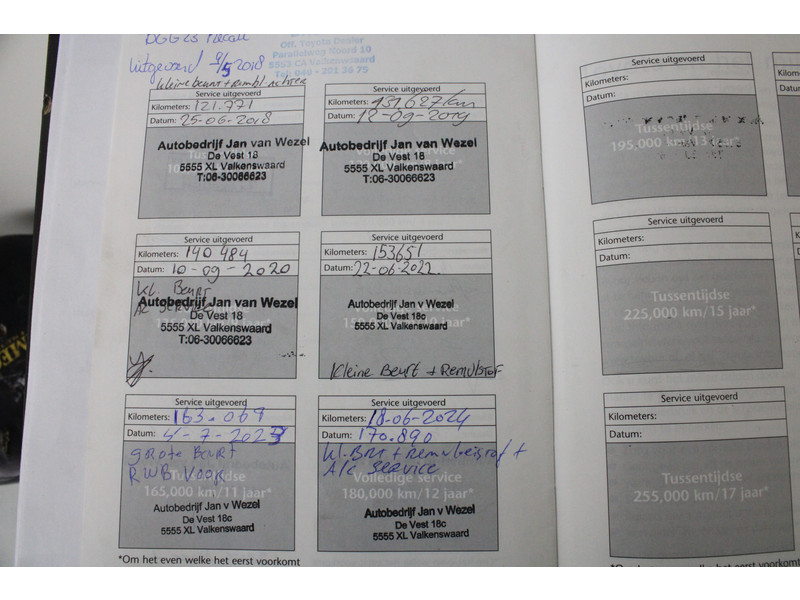 DGG25 Recall
Uitgevoerd 9/5 2018
Off. Toyota Dealer
Parallelweg Noord 10
5553 CA Valkenswaard
Tel: 040 - 201 36 75
kleine beurt + rembl achter
Service uitgevoerd
Kilometers: 121.771
Datum: 25-06-2018
Autobedrijf Jan van Wezel
De Vest 18
5555 XL Valkenswaard
T:06-30066623
Service uitgevoerd
Kilometers: 131.627 km
Datum: 12-09-2019
Autobedrijf Jan van Wezel
De Vest 18
5555 XL Valkenswaard
T:06-30066623
Service uitgevoerd
Kilometers: 140 484
Datum: 10-09-2020
KL. Beurt
AC Service
Autobedrijf Jan van Wezel
De Vest 18
5555 XL Valkenswaard
T:06-30066623
Service uitgevoerd
Kilometers: 153651
Datum: 22-06-2022
Autobedrijf Jan v Wezel
De Vest 18c
5555 XL Valkenswaard
Kleine Beurt + Remvlstof
Service uitgevoerd
Kilometers: 163.069
Datum: 4-7-2023
grote Beurt
RWB Voor
165,000 km/11 jaar*
Autobedrijf Jan v Wezel
De Vest 18c
5555 XL Valkenswaard
Service uitgevoerd
Kilometers: 18-06-2024
Datum: 170.890
kl. Brt + remvloeistof +
A/c service
Volledige service
180,000 km/12 jaar*
Autobedrijf Jan v Wezel
De Vest 18c
5555 XL Valkenswaard
*Om het even welke het eerst voorkomt
Service uitgevoerd
Kilometers:
Datum:
Tussentijdse
195,000 km/13 jaar*
Service uitgevoerd
Kilometers:
Datum:
Tussentijdse
225,000 km/15 jaar*
Service uitgevoerd
Kilometers:
Datum:
Tussentijdse
255,000 km/17 jaar*
*Om het even welke het eerst voorkomt